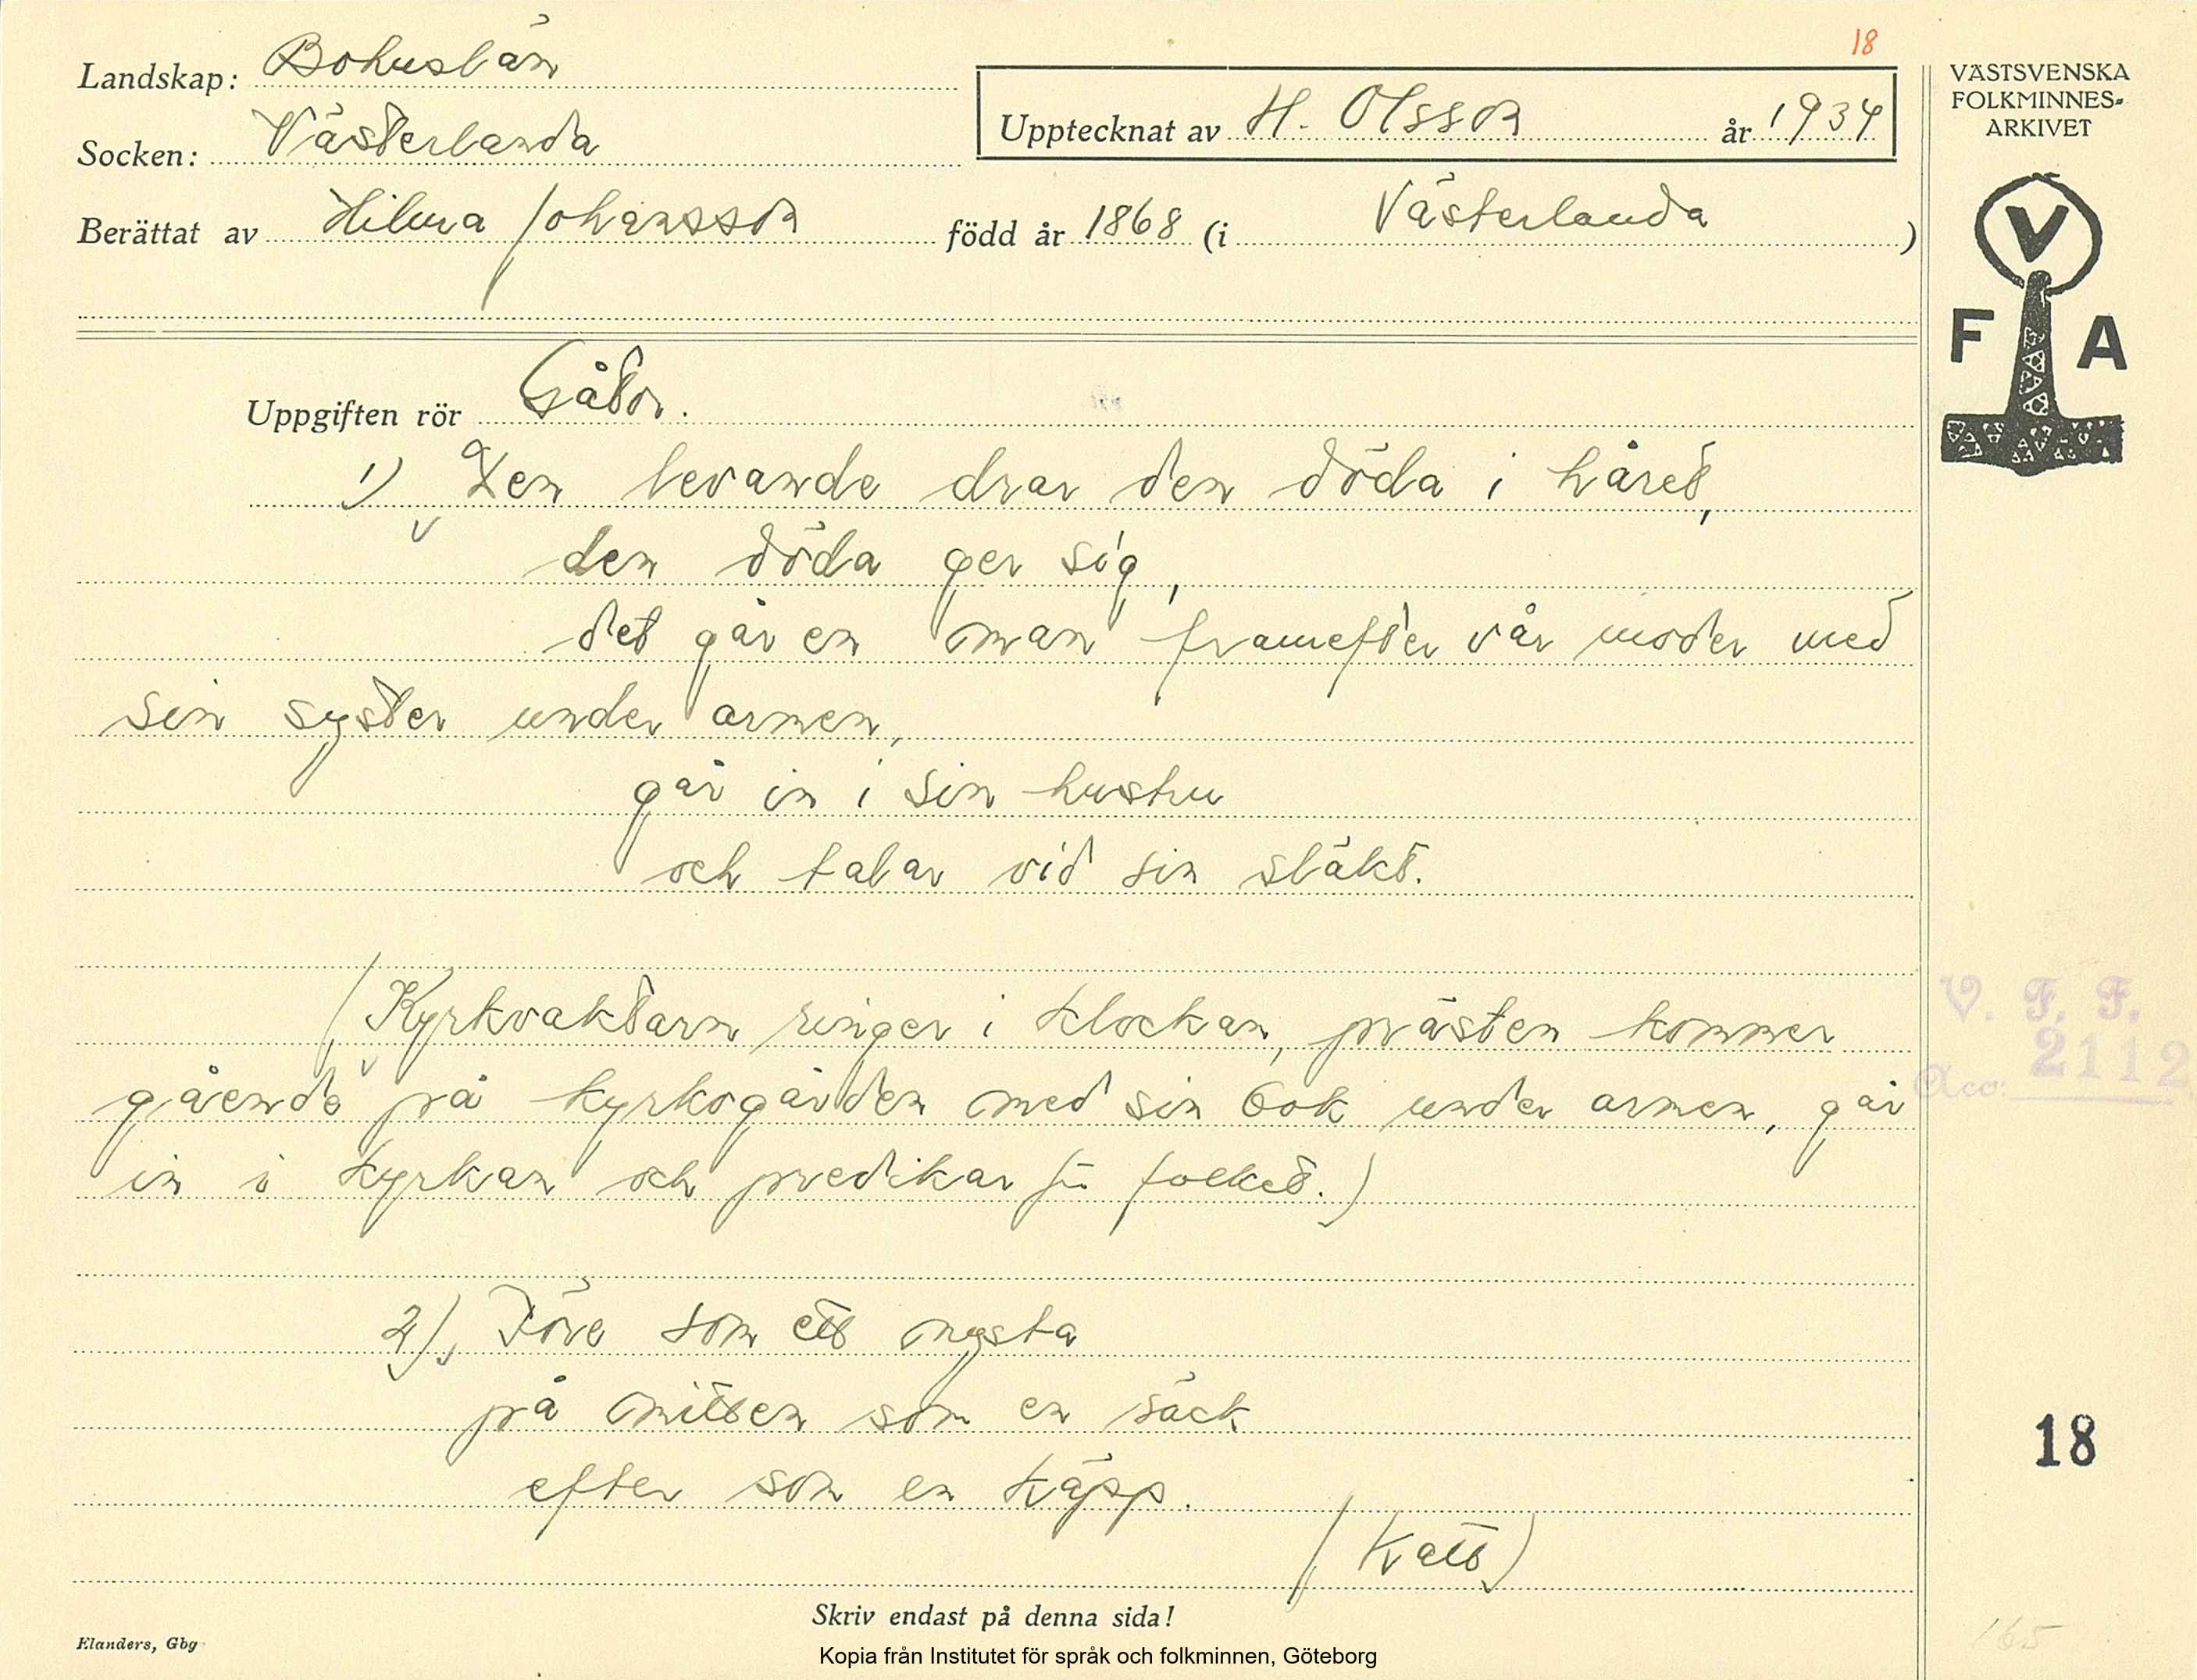 18
Landskap: Bohuslän
Socken: Västerlanda
Upptecknat av H. Olsson år 1934
Berättat av Hilma Johansson född år 1868 (i Västerlanda)
VÄSTSVENSKA
FOLKMINNES-
ARKIVET
V
F A
Uppgiften rör Gåtor.
1) Den levande drar den döda i håret,
den döda ger sig,
det går en man framefter vår moder med
sin syster under armen,
går in i sin hustru
och talar vid sin släkt.
(Kyrkvaktarn ringer i klockan, prästen kommer
gående på kyrkogården med sin bok under armen, går
in i kyrkan och predikar för folket.)
V. F. F.
Acc: 2112
2) Före som ett nysta
på mitten som en säck
efter som en käpp.
(Katt)
18
Skriv endast på denna sida!
Elanders, Gbg
165
Kopia från Institutet för språk och folkminnen, Göteborg